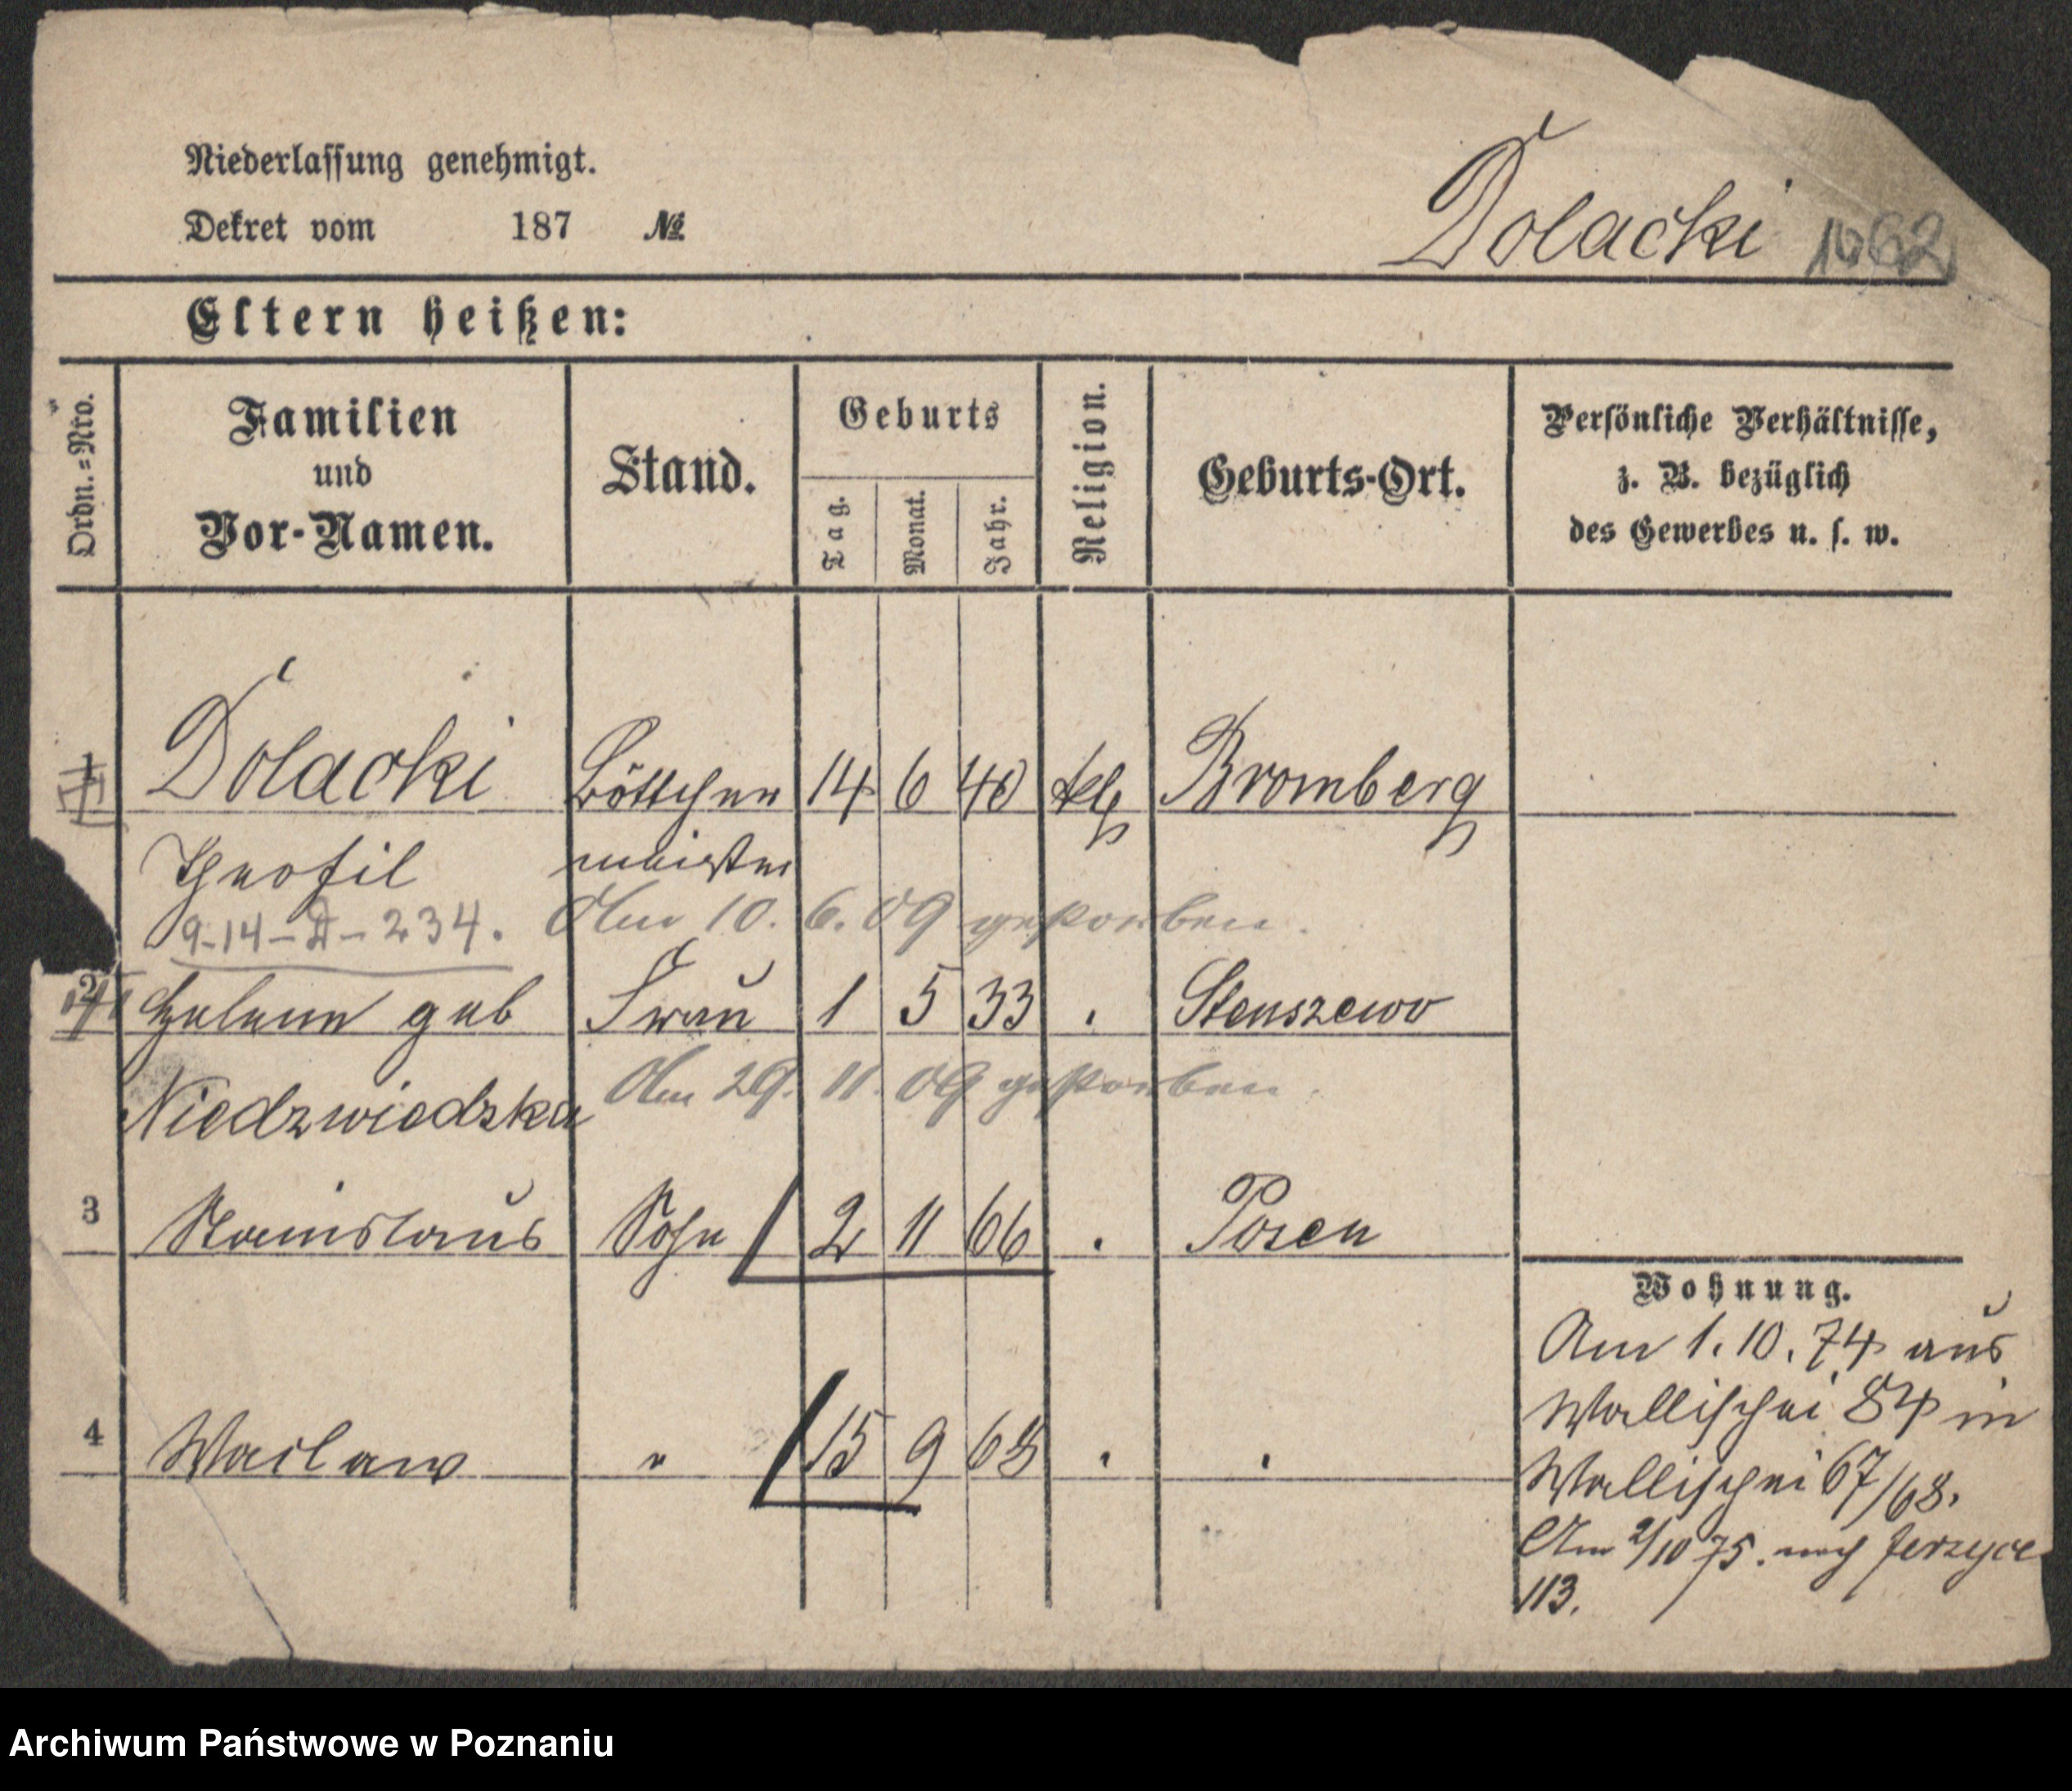 Niederlassung genehmigt.
Dekret vom 187 №
Dolacki 1662
Eltern heißen:
Ordn.=Nro.
Familien
und
Vor-Namen.
Stand.
Geburts
Tag.
Monat.
Jahr.
Religion.
Geburts-Ort.
Persönliche Verhältnisse,
z. B. bezüglich
des Gewerbes u. s. w.
1 Dolacki Böttcher 14 6 40 kth Bromberg
Theofil meister
9-14-D-234. Am 10. 6. 09 gestorben.
2 Helene geb Frau 1 5 33 " Stenszewo
Niedzwiedzka Am 29. 11. 09 gestorben.
3 Stanislaus Sohn 2 11 66 " Posen
4 Waclaw " 15 9 68 " "
Wohnung.
Am 1. 10. 74 aus
Wallischei 84 in
Wallischei 67/68.
Am 2/10 75. nach Jerzyce
113.
Archiwum Państwowe w Poznaniu